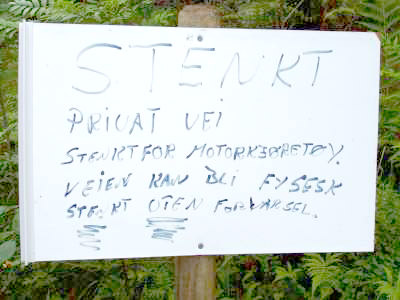 STENKT
PRIVAT VEI
STENKT FOR MOTORKJØRETØY.
VEIEN KAN BLI FYSESK
STENKT UTEN FORVARSEL.